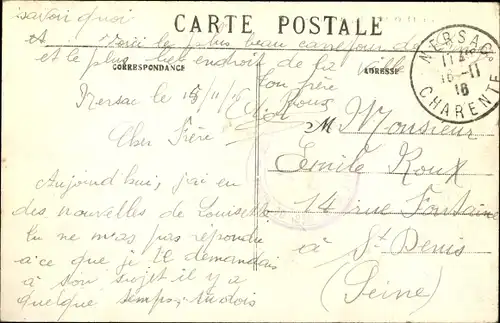 savoir quoi
CARTE POSTALE
A voici le plus beau carrefour de
et le plus bel endroit de la ville
CORRESPONDANCE
ADRESSE
Ton frère
Roux
Nersac le 15/11/16
Cher Frère
Aujourd'hui, j'ai eu
des nouvelles de Louisette
tu ne m'as pas répondu
à ce que je te demandais
à son sujet il y a
quelque temps, tu dois
M Monsieur
Emile Roux
14 rue Fontaine
à St Denis
(Seine)
NERSAC
16-11
16
CHARENTE